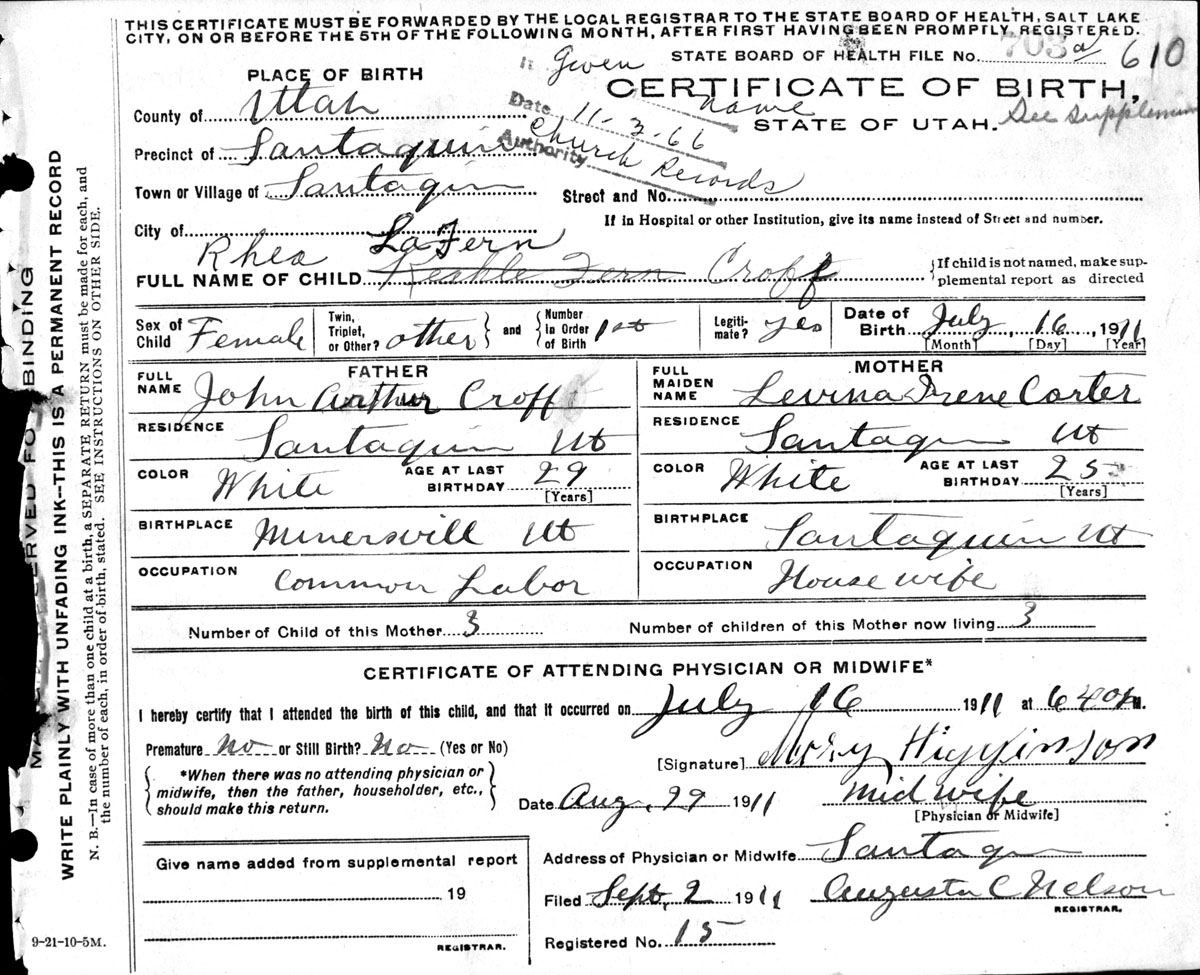 THIS CERTIFICATE MUST BE FORWARDED BY THE LOCAL REGISTRAR TO THE STATE BOARD OF HEALTH, SALT LAKE
CITY, ON OR BEFORE THE 5TH OF THE FOLLOWING MONTH, AFTER FIRST HAVING BEEN PROMPTLY REGISTERED.
STATE BOARD OF HEALTH FILE NO. 703 a 610
Given
PLACE OF BIRTH
CERTIFICATE OF BIRTH,
name
County of Utah
Date 11-3-66
STATE OF UTAH. See Supplemen
Precinct of Santaquin
Authority Church Records
Town or Village of Santaqin
Street and No.
City of
If in Hospital or other Institution, give its name instead of Street and number.
Rhea LaFern
FULL NAME OF CHILD Fern Croff
{If child is not named, make sup-
plemental report as directed
Sex of Child Female
Twin, Triplet, or Other? other } and { Number In Order of Birth 1st
Legiti- mate? yes
Date of Birth July, 16, 1911
[Month] [Day] [Year]
FATHER
MOTHER
FULL NAME John Arthur Croff
FULL MAIDEN NAME Levina Irene Carter
RESIDENCE Santaquin Ut
RESIDENCE Santaqin Ut
COLOR White AGE AT LAST BIRTHDAY 29 [Years]
COLOR White AGE AT LAST BIRTHDAY 25 [Years]
BIRTHPLACE Minersvill Ut
BIRTHPLACE Santaquin Ut
OCCUPATION Common Labor
OCCUPATION House wife
Number of Child of this Mother 3
Number of children of this Mother now living 3
CERTIFICATE OF ATTENDING PHYSICIAN OR MIDWIFE*
I hereby certify that I attended the birth of this child, and that it occurred on July 16 1911 at 640 M.
Premature No or Still Birth? No (Yes or No)
[Signature] Mory Higginson
{ *When there was no attending physician or
midwife, then the father, householder, etc.,
should make this return. }
Date Aug, 29 1911
Mid wife
[Physician or Midwife]
Give name added from supplemental report
19
REGISTRAR.
Address of Physician or Midwife Santaqin
Filed Sept, 2 1911
Augusta C Nelson
REGISTRAR.
Registered No. 15
9-21-10-5M.
BINDING
WRITE PLAINLY WITH UNFADING INK—THIS IS A PERMANENT RECORD
N. B.—In case of more than one child at a birth, a SEPARATE RETURN must be made for each, and
the number of each, in order of birth, stated. SEE INSTRUCTIONS ON OTHER SIDE.